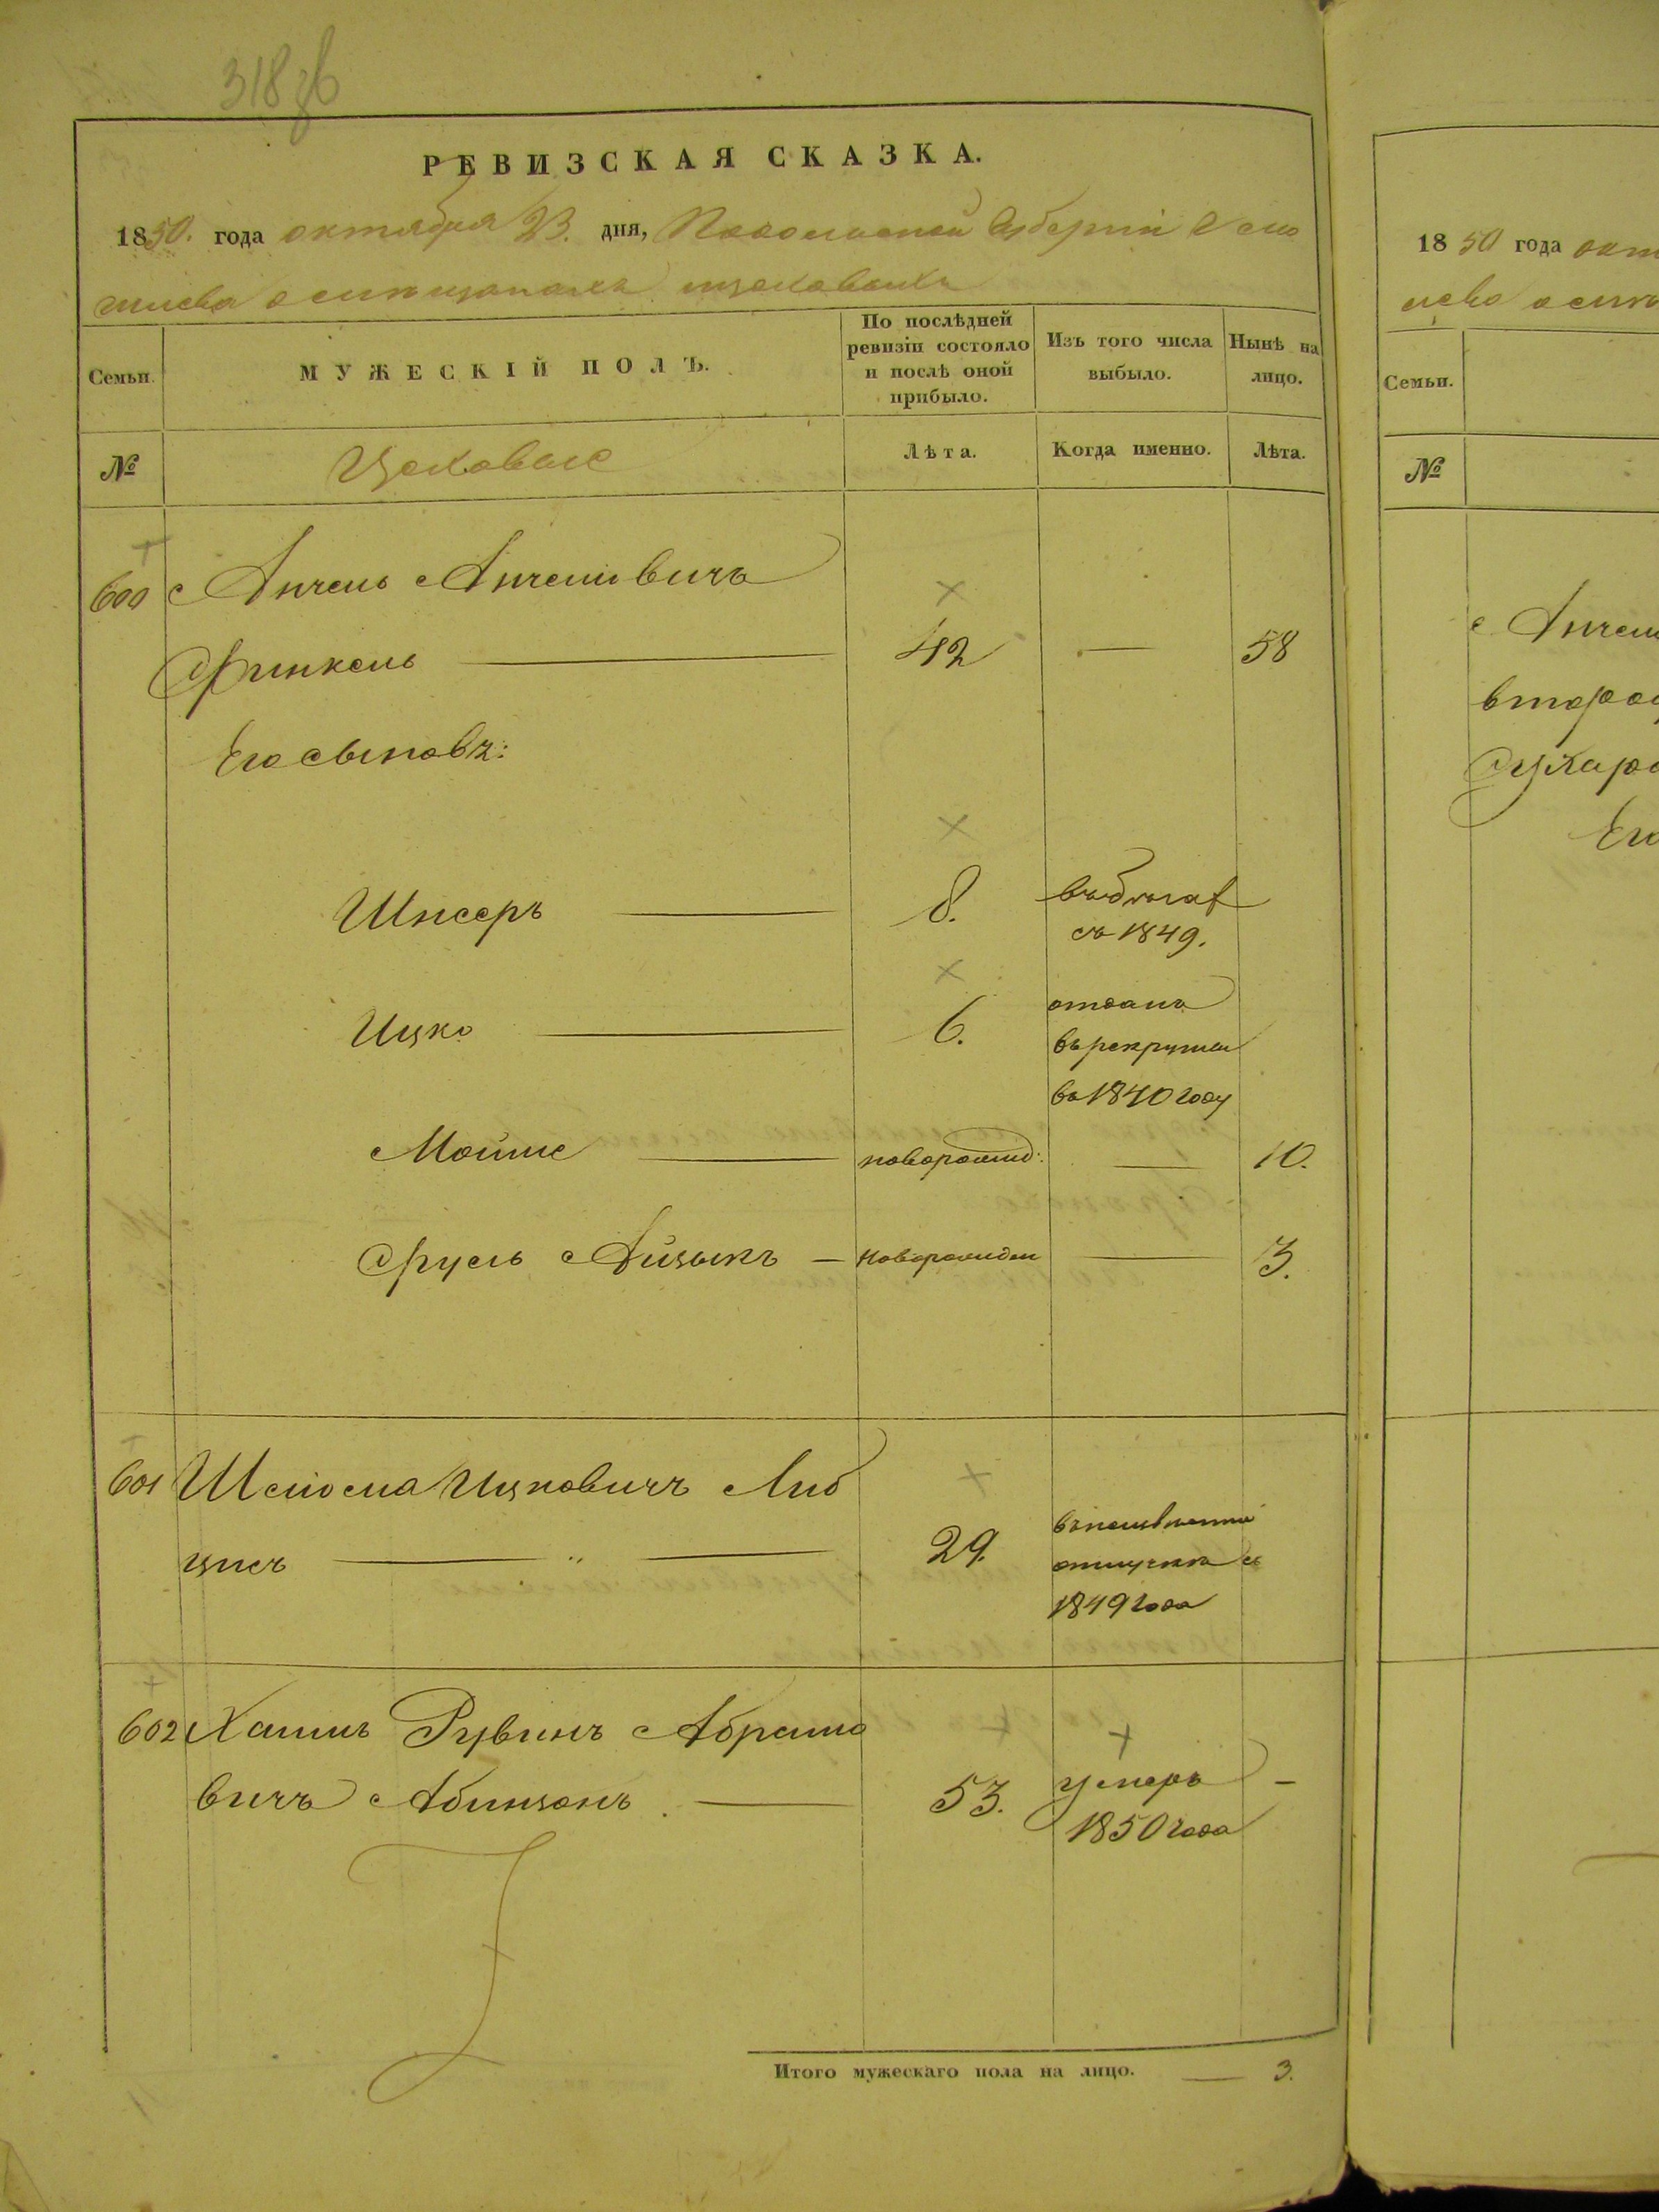 318 об
РЕВИЗСКАЯ СКАЗКА.
1850. года октября 23. дня, Подольской Губерніи
цеховыхъ
Семьи.
МУЖЕСКІЙ ПОЛЪ.
По послѣдней ревизіи состояло и послѣ оной прибыло.
Изъ того числа выбыло.
Нынѣ на лицо.
№
Цеховые
Лѣта.
Когда именно.
Лѣта.
600 Анчель Анчелювичъ
Финкель 42 — 58
Его сыновъ:
8.
съ 1849.
Ицко 6. отданъ
въ рекруты
въ 1840 году
Мойше новорожд: — 10.
Сруль Айзыкъ — новорожден — 3.
601 Шлиома Ицковичъ
29.
отлучкѣ съ
1849 года
602 Хаимъ Рувинъ Абрамо
вичъ 53. умеръ —
1850 года
Итого мужескаго пола на лицо. — 3.
1850 года окт
Семьи.
№
Анчел
второ
Его